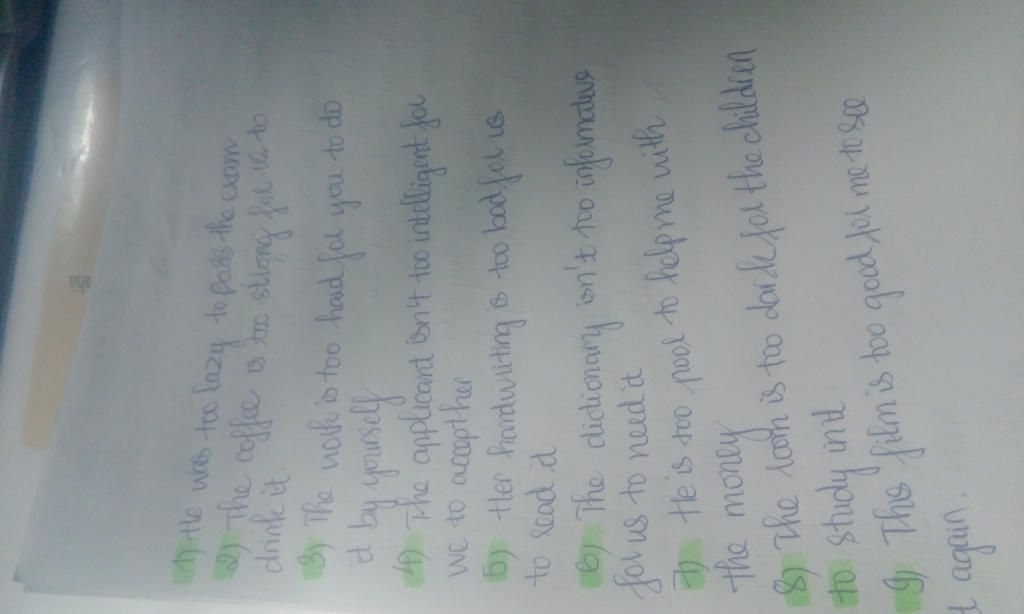 1) He was too lazy to pass the exam
2) The coffee is too strong for us to
drink it.
3) The work is too hard for you to do
it by yourself
4) The applicant isn't too intelligent for
we to accept her
5) Her handwriting is too bad for us
to read it
6) The dictionary isn't too informative
for us to need it
7) He is too pool to help me with
the money
8) The room is too dark for the children
to study in it
9) This film is too good for me to see
it again.